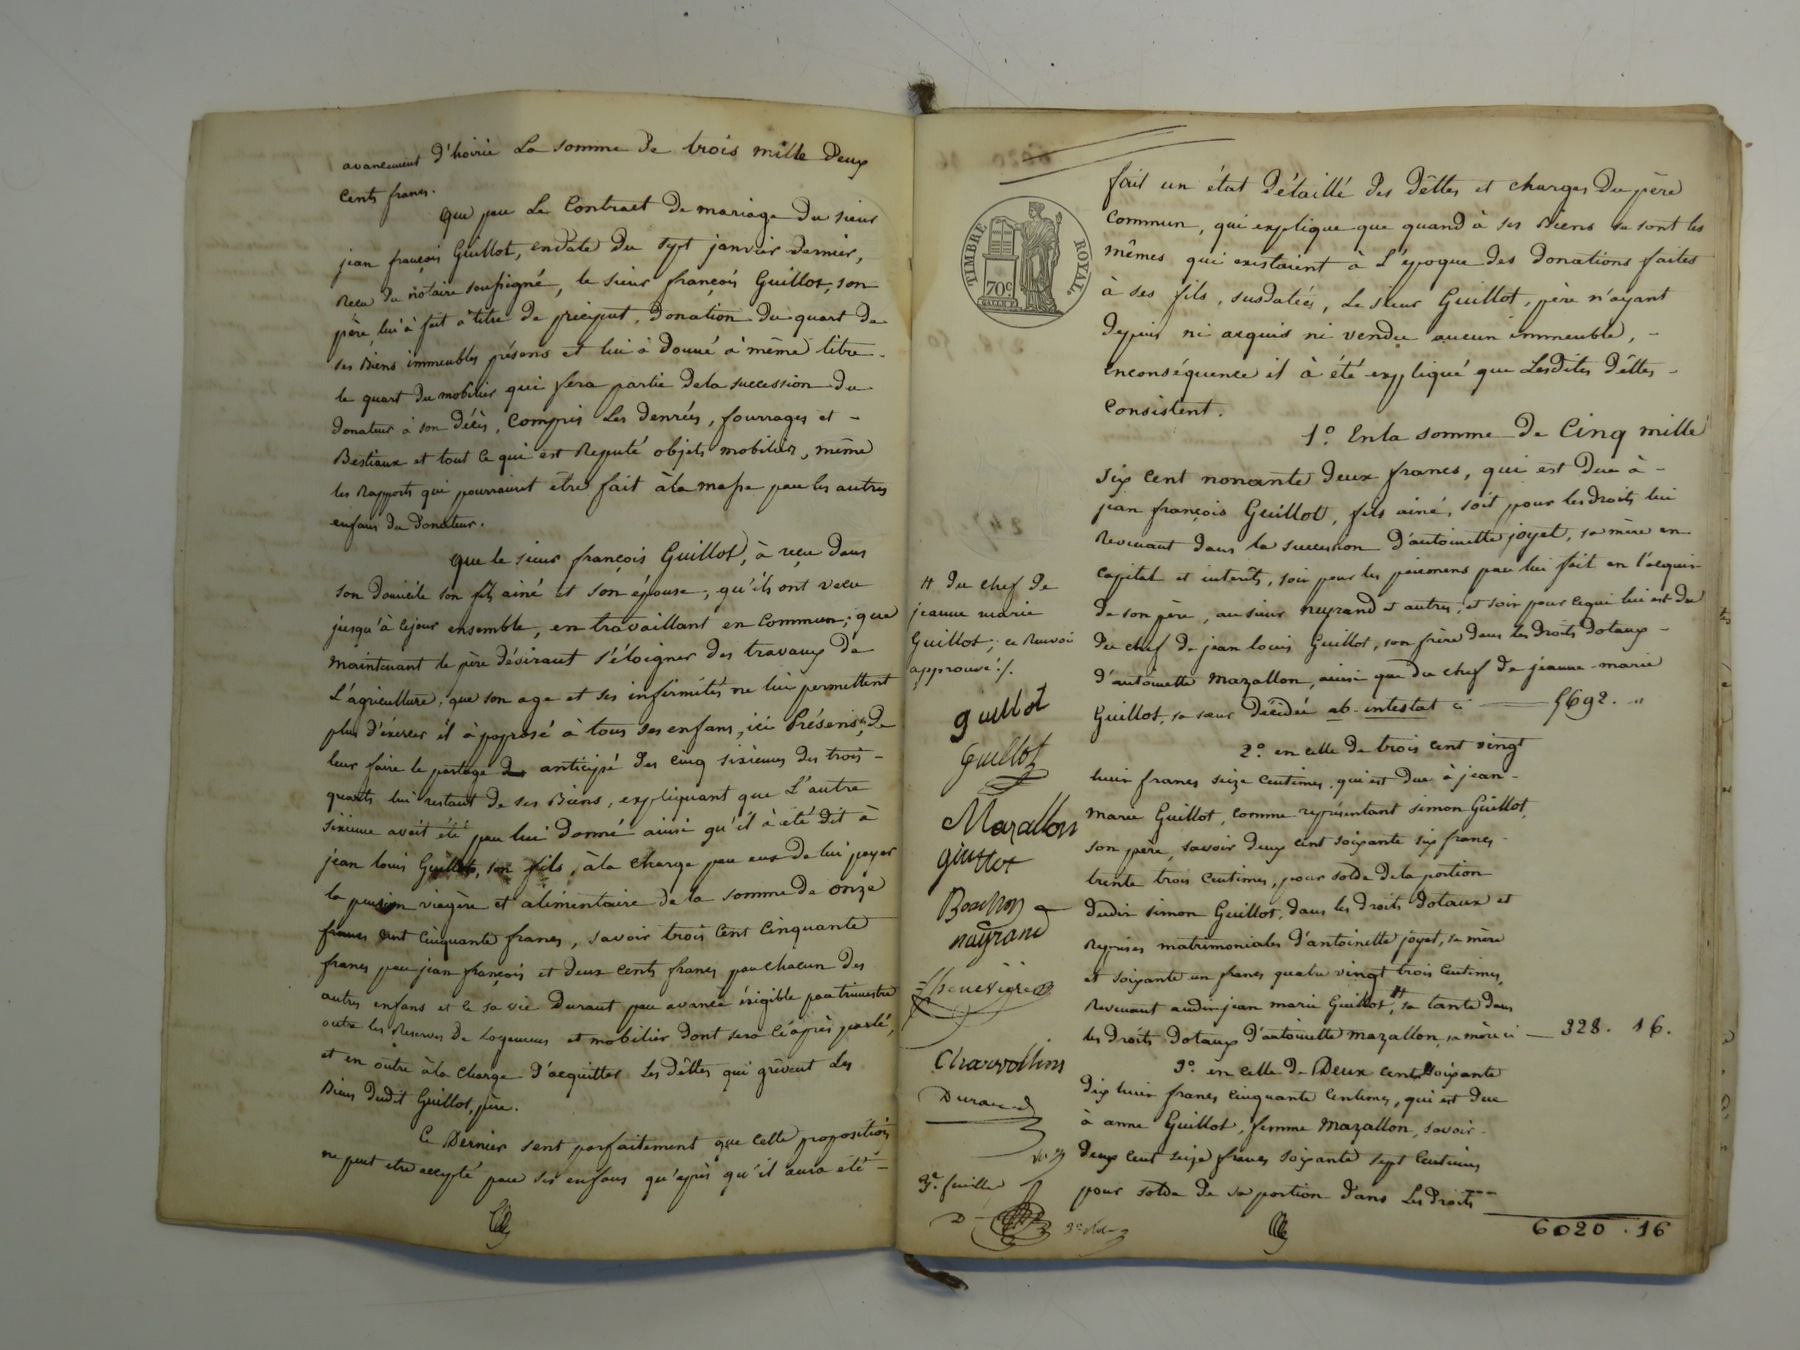 avancement d'hoirie La somme De trois mille Deux
Cents francs.
que par Le Contract De mariage Du sieur
jean françois Guillot, endate Du sept janvier Dernier,
Recu Du Notaire soussigné, le sieur françois Guillot, son
père, lui à fait à titre De préciput, Donation Du quart De
ses Biens immeubles présens et lui à Donné à même titre
le quart Du mobilier qui fera partie Dela succession Du
Donateur à son Décès, Compris Les Denrées, fourrages et -
Bestiaux et tout Ce qui est Réputé objets mobilier, même
les Rapports qui pourraient être fait àla masse par les autres
enfans Du Donateur.
que le sieur françois Guillot, à reçu Dans
son Domicile son fils ainé et son épouse, qu'ils ont vecu
jusqu'à cejour ensemble, en travaillant en Commun; que
maintenant le père Désirant s'éloigner Des travaux De
L'agriculture, que son age et ses infirmités ne lui permettent
plus D'éxercer il à proposé à tous ses enfans, ici Présens, De
leur faire le partage anticipé Des cinq sixiemes Des trois -
quarts lui restant De ses Biens, expliquant que L'autre
sixieme avait été par lui Donné ainsi qu'il à été Dit à
jean louis Guillot, son fils, àla Charge par eux De lui payer
la pension viagère et alimentaire De la somme De onze
francs cent Cinquante francs, savoir trois Cent Cinquante
francs par jean françois et Deux Cents francs par Chacun Des
autres enfans et ce sa vie Durant par avance éxigible par trimestre
outre les Réserves De Logemens et mobilier Dont sera Ciaprès parlé,
et en outre àla Charge D'acquitter Les Dêttes qui grèvent Les
Biens Dudit Guillot, père.
Ce Dernier sent parfaitement que Cette proposition
ne peut etre accepté par ses enfans qu'après qu'il aura été -
TIMBRE ROYAL
70c
fait un état Détaillé Des Dêttes et charges Du père
Commun, qui explique que quand à ses Biens ce sont les
mêmes qui existaient à L'époque Des Donations faites
à ses fils, susdatées, Le sieur Guillot, père n'ayant
Depuis ni acquis ni vendu aucun immeuble, -
enconséquence il à été expliqué que Lesdites Dêttes -
Consistent.
1.° Enla somme De Cinq mille
six Cent nonante Deux francs, qui est Due à -
jean françois Guillot, fils ainé, soit pour les Droits lui
Revenant Dans la succession D'antoinette joyet, sa mère en
Capital et interêts, soit pour les paiemens par lui fait en l'acquit
De son père, au sieur neyrand & autres, et soit pour cequi lui est Du
Du chef De jean louis Guillot, son frère Dans les Droits Dotaux -
D'antoinette Mazallon, ainsi que Du chef De jeanne-marie
Guillot, sa sœur Décédée ab-intestat ci 5692. "
2.° en celle De trois cent vingt
huit francs seize Centimes, qui est Due à jean -
marie Guillot, Comme représentant simon Guillot,
son père, savoir Deux cent soixante six francs -
trente trois Centimes, pour solde Dela portion
Dudit simon Guillot, Dans les Droits Dotaux et
Reprises matrimoniales D'antoinette joyet, sa mère
et soixante un francs quatre vingt trois Centimes,
Revenant audit jean marie Guillot, # sa tante Dans
les Droits Dotaux D'antoinette Mazallon, sa mère ci — 328. 16.
3.° en celle De Deux cent soixante
Dix huit francs Cinquante Centimes, qui est Due
à anne Guillot, femme Mazallon, savoir -
Deux Cent seize francs soixante sept Centimes
pour solde De sa portion Dans Les Droits
6020.16
# Du Chef De
jeanne marie
Guillot; ce Renvoi
approuvé./.
guillot
Guillot
Mazallon
guillot
neyrand
Durand
3.e feuille